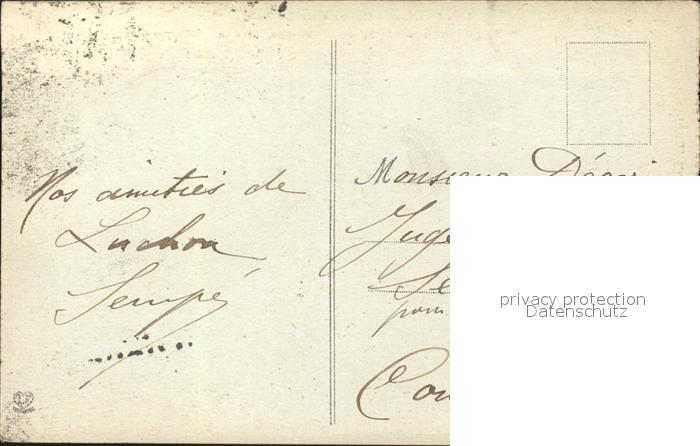 Nos amitiés de
Luchon
Sempé
Monsieur
Juge
pour
privacy protection
Datenschutz